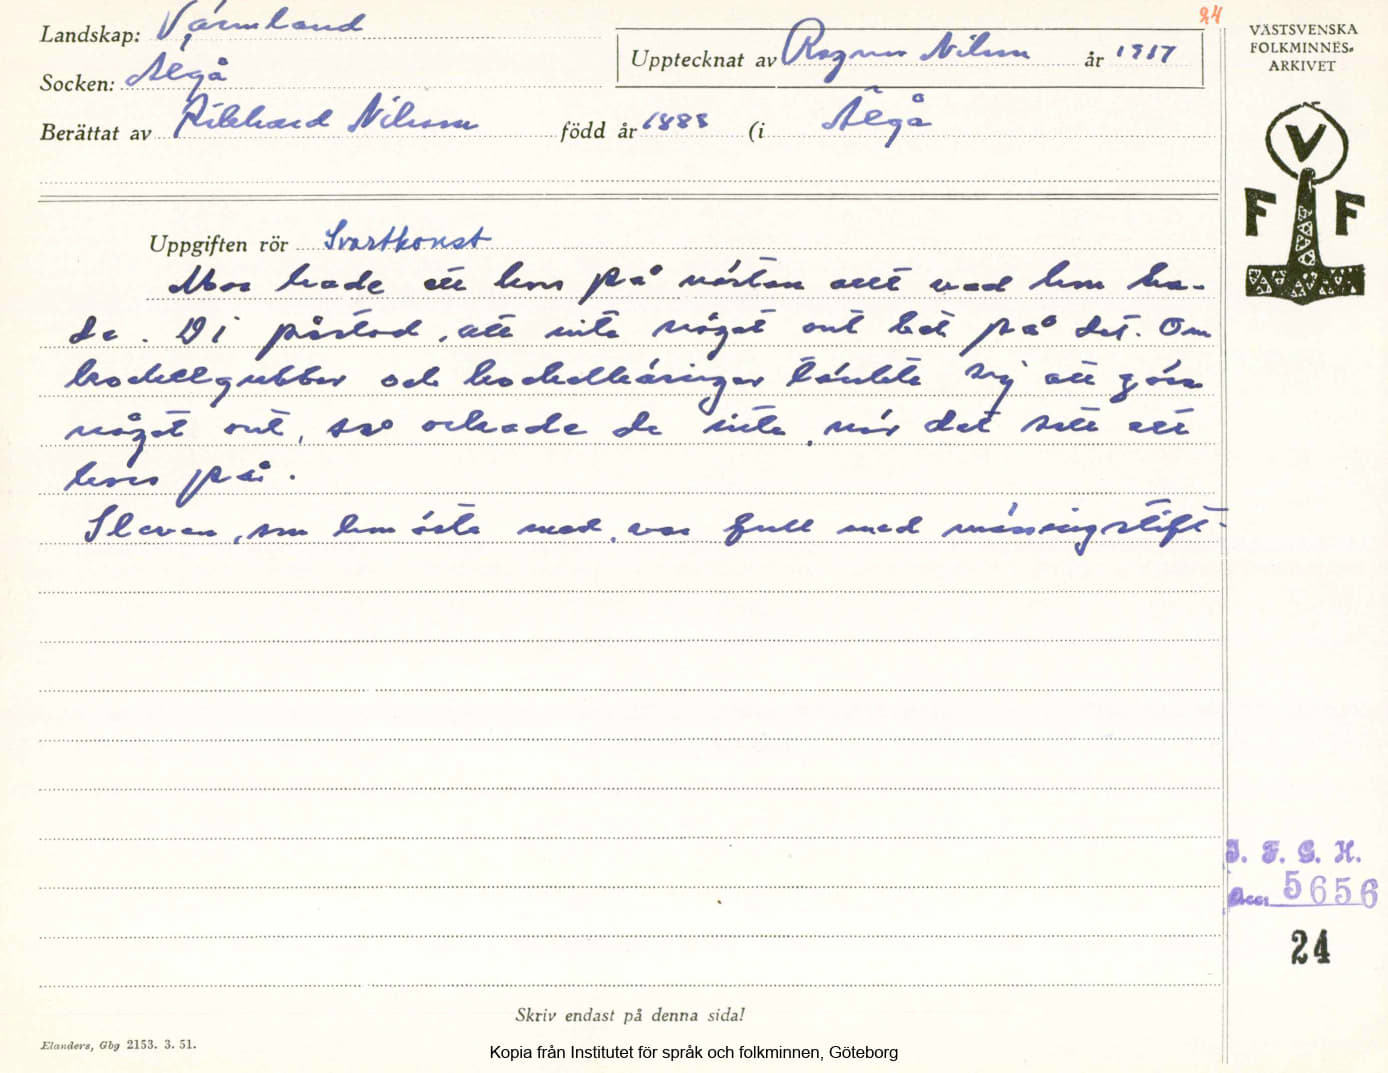 24
Landskap: Värmland
Socken: Älgå
Upptecknat av Ragnar Nilsson år 1917
Berättat av Rikhard Nilsson född år 1888 (i Älgå
VÄSTSVENSKA
FOLKMINNES-
ARKIVET
V
F F
Uppgiften rör Svartkonst
Mor hade ett kors på nästan allt vad hon ha-
de. Di påstod, att inte något ont bet på det. Om
trollgubbar och trollkäringar tänkte sig att göra
något ont, så orkade de inte, när det satt ett
kors på.
Sleven, som hon öste med, var full med mässingstift-
I. F. G. H.
Acc. 5656
24
Skriv endast på denna sida!
Elanders, Gbg 2153. 3. 51.
Kopia från Institutet för språk och folkminnen, Göteborg